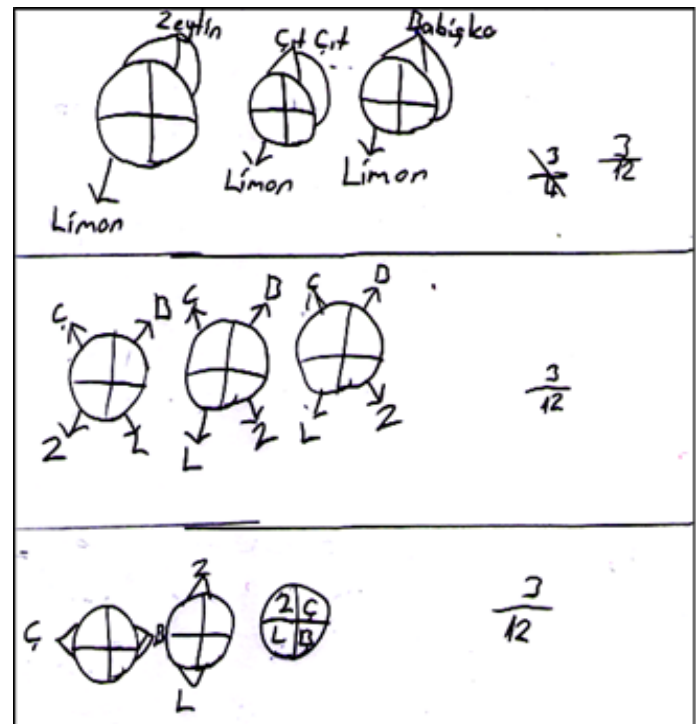 Zeytin Çıt Çıt Babişko
Limon Limon Limon
3/4 3/12
Ç B Ç B Ç B
Z L L Z L Z
3/12
Z
Ç B Z Ç
L B
L
3/12